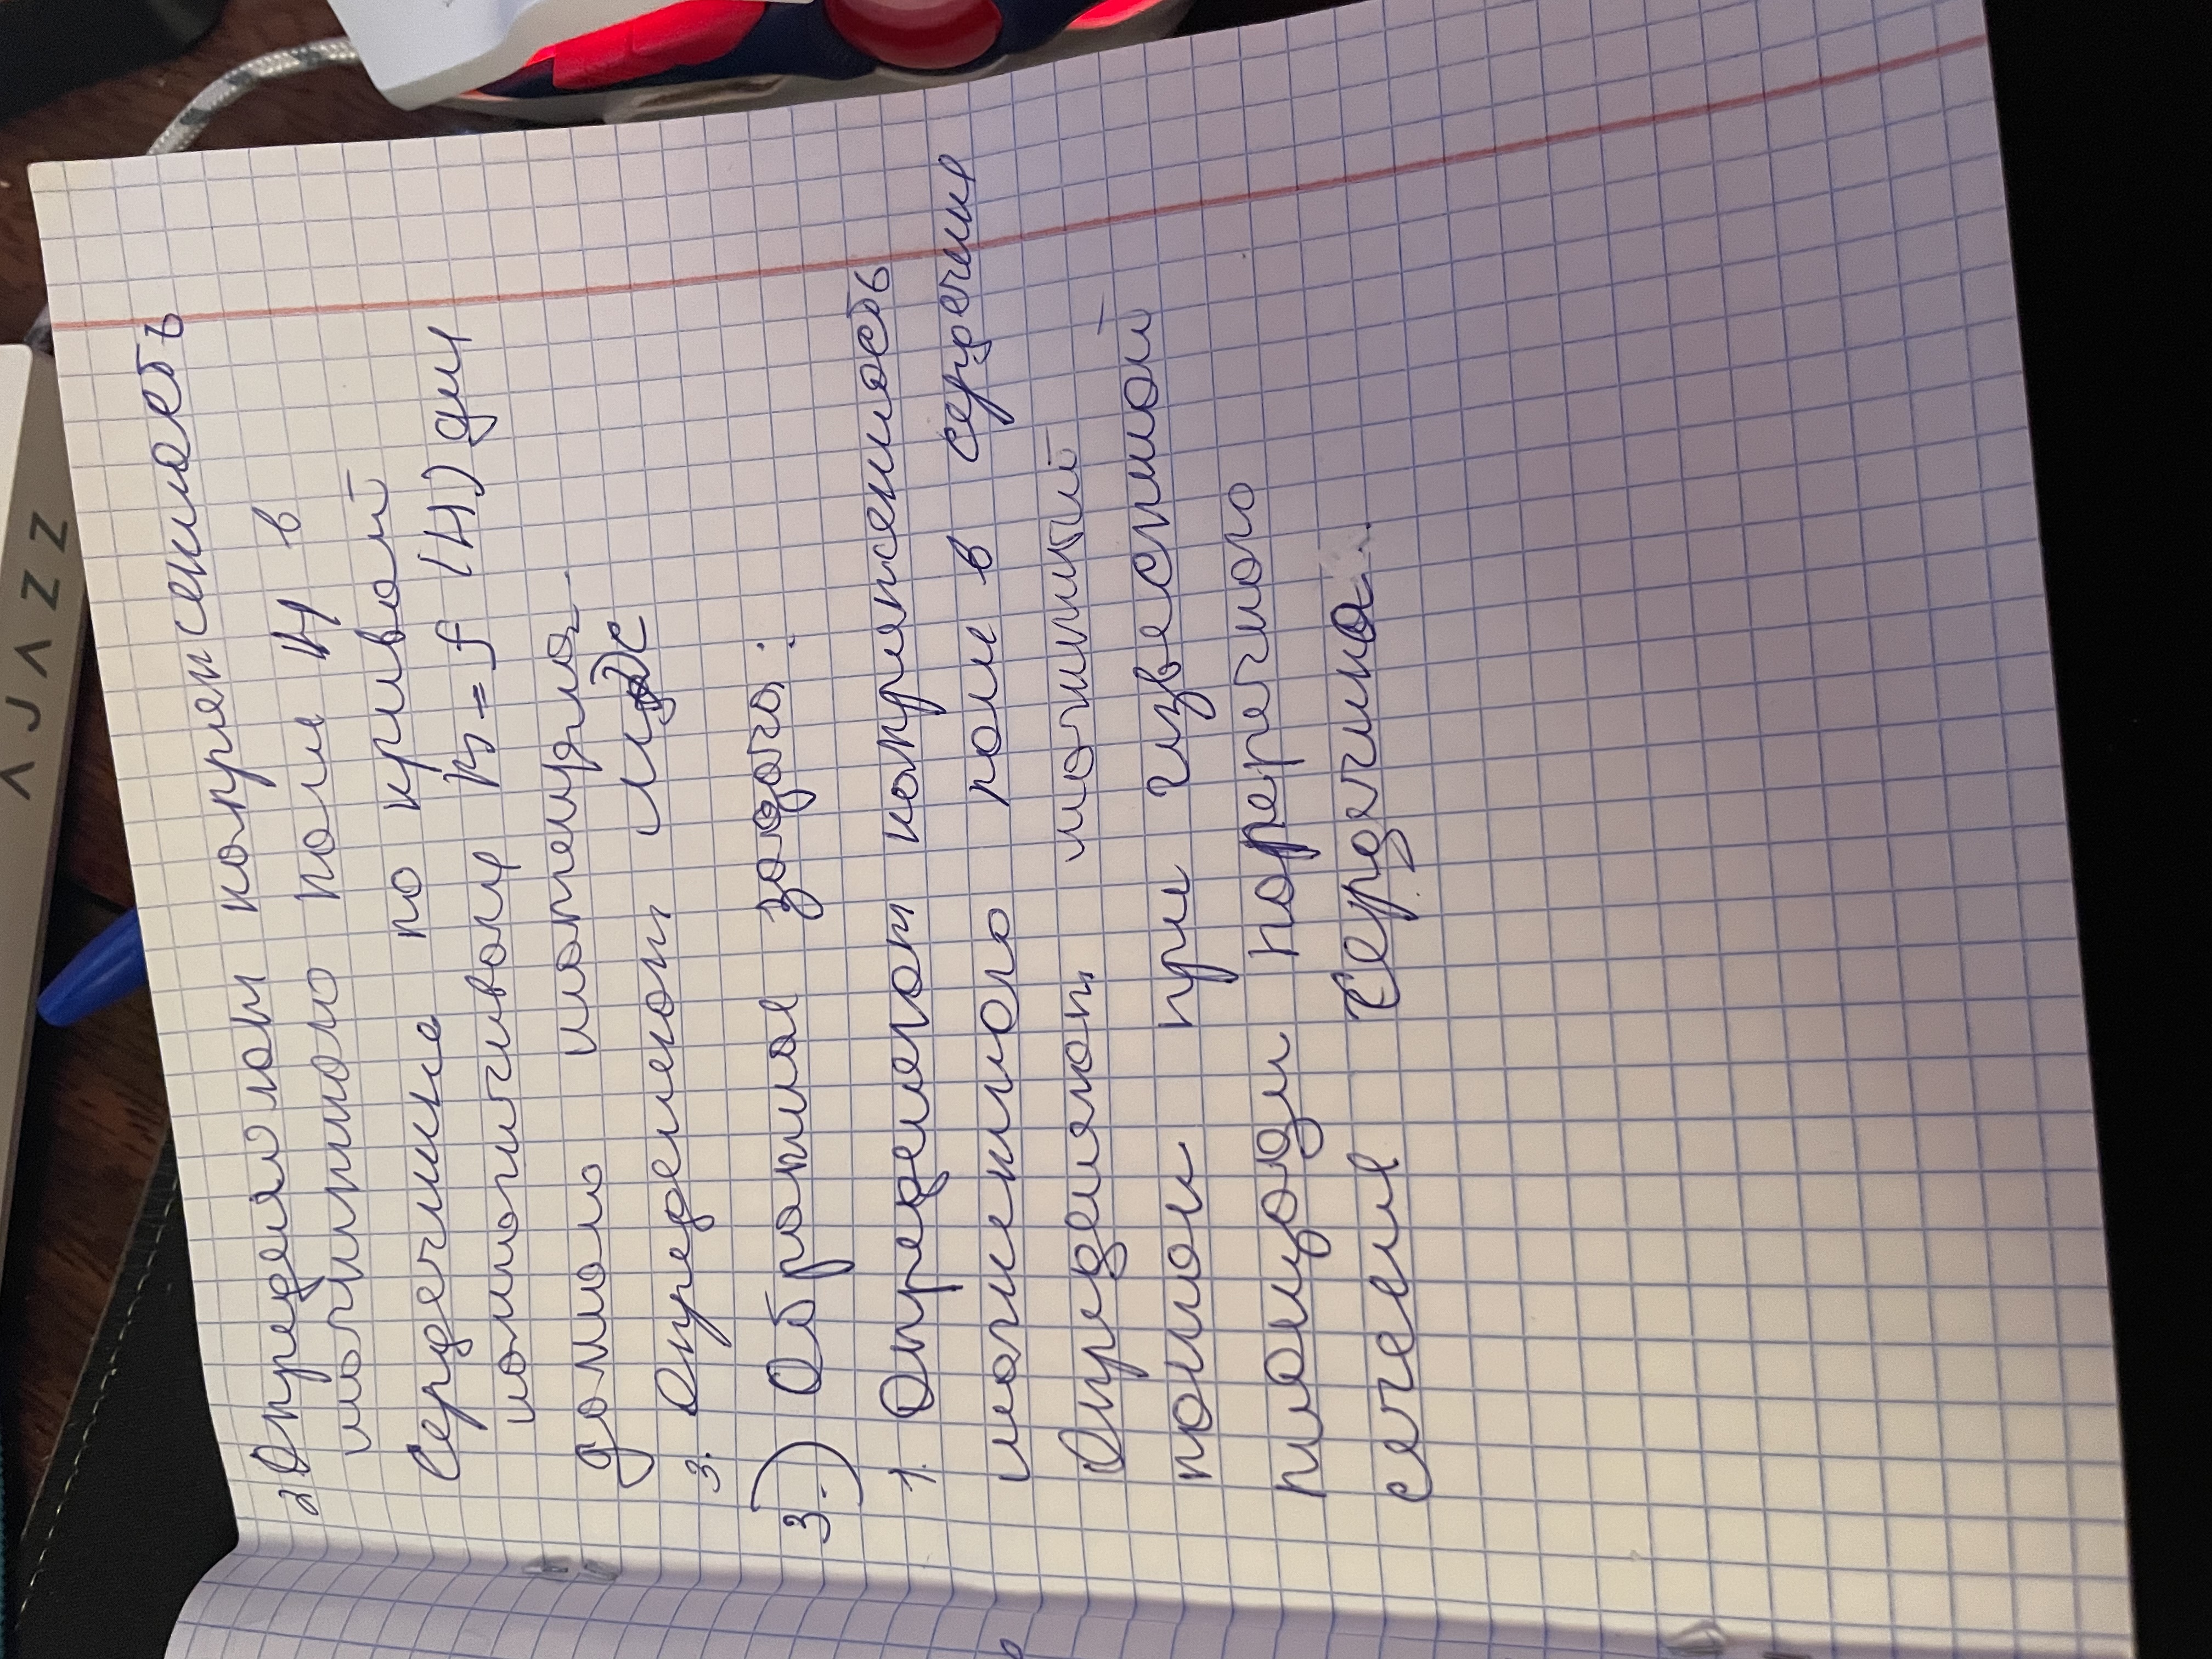 2. Определяют напряженность
магнитного поля H в
Сердечнике по кривой
намагничивания B = f (H) для
данного материала.
3. Определяют МДС
3.) Обратная задача:
1. Определяют напряженность
магнитного поля в сердечнике
Определяют магнитный
поток при известной
площади поперечного
сечения Сердечника.
AJAZZ